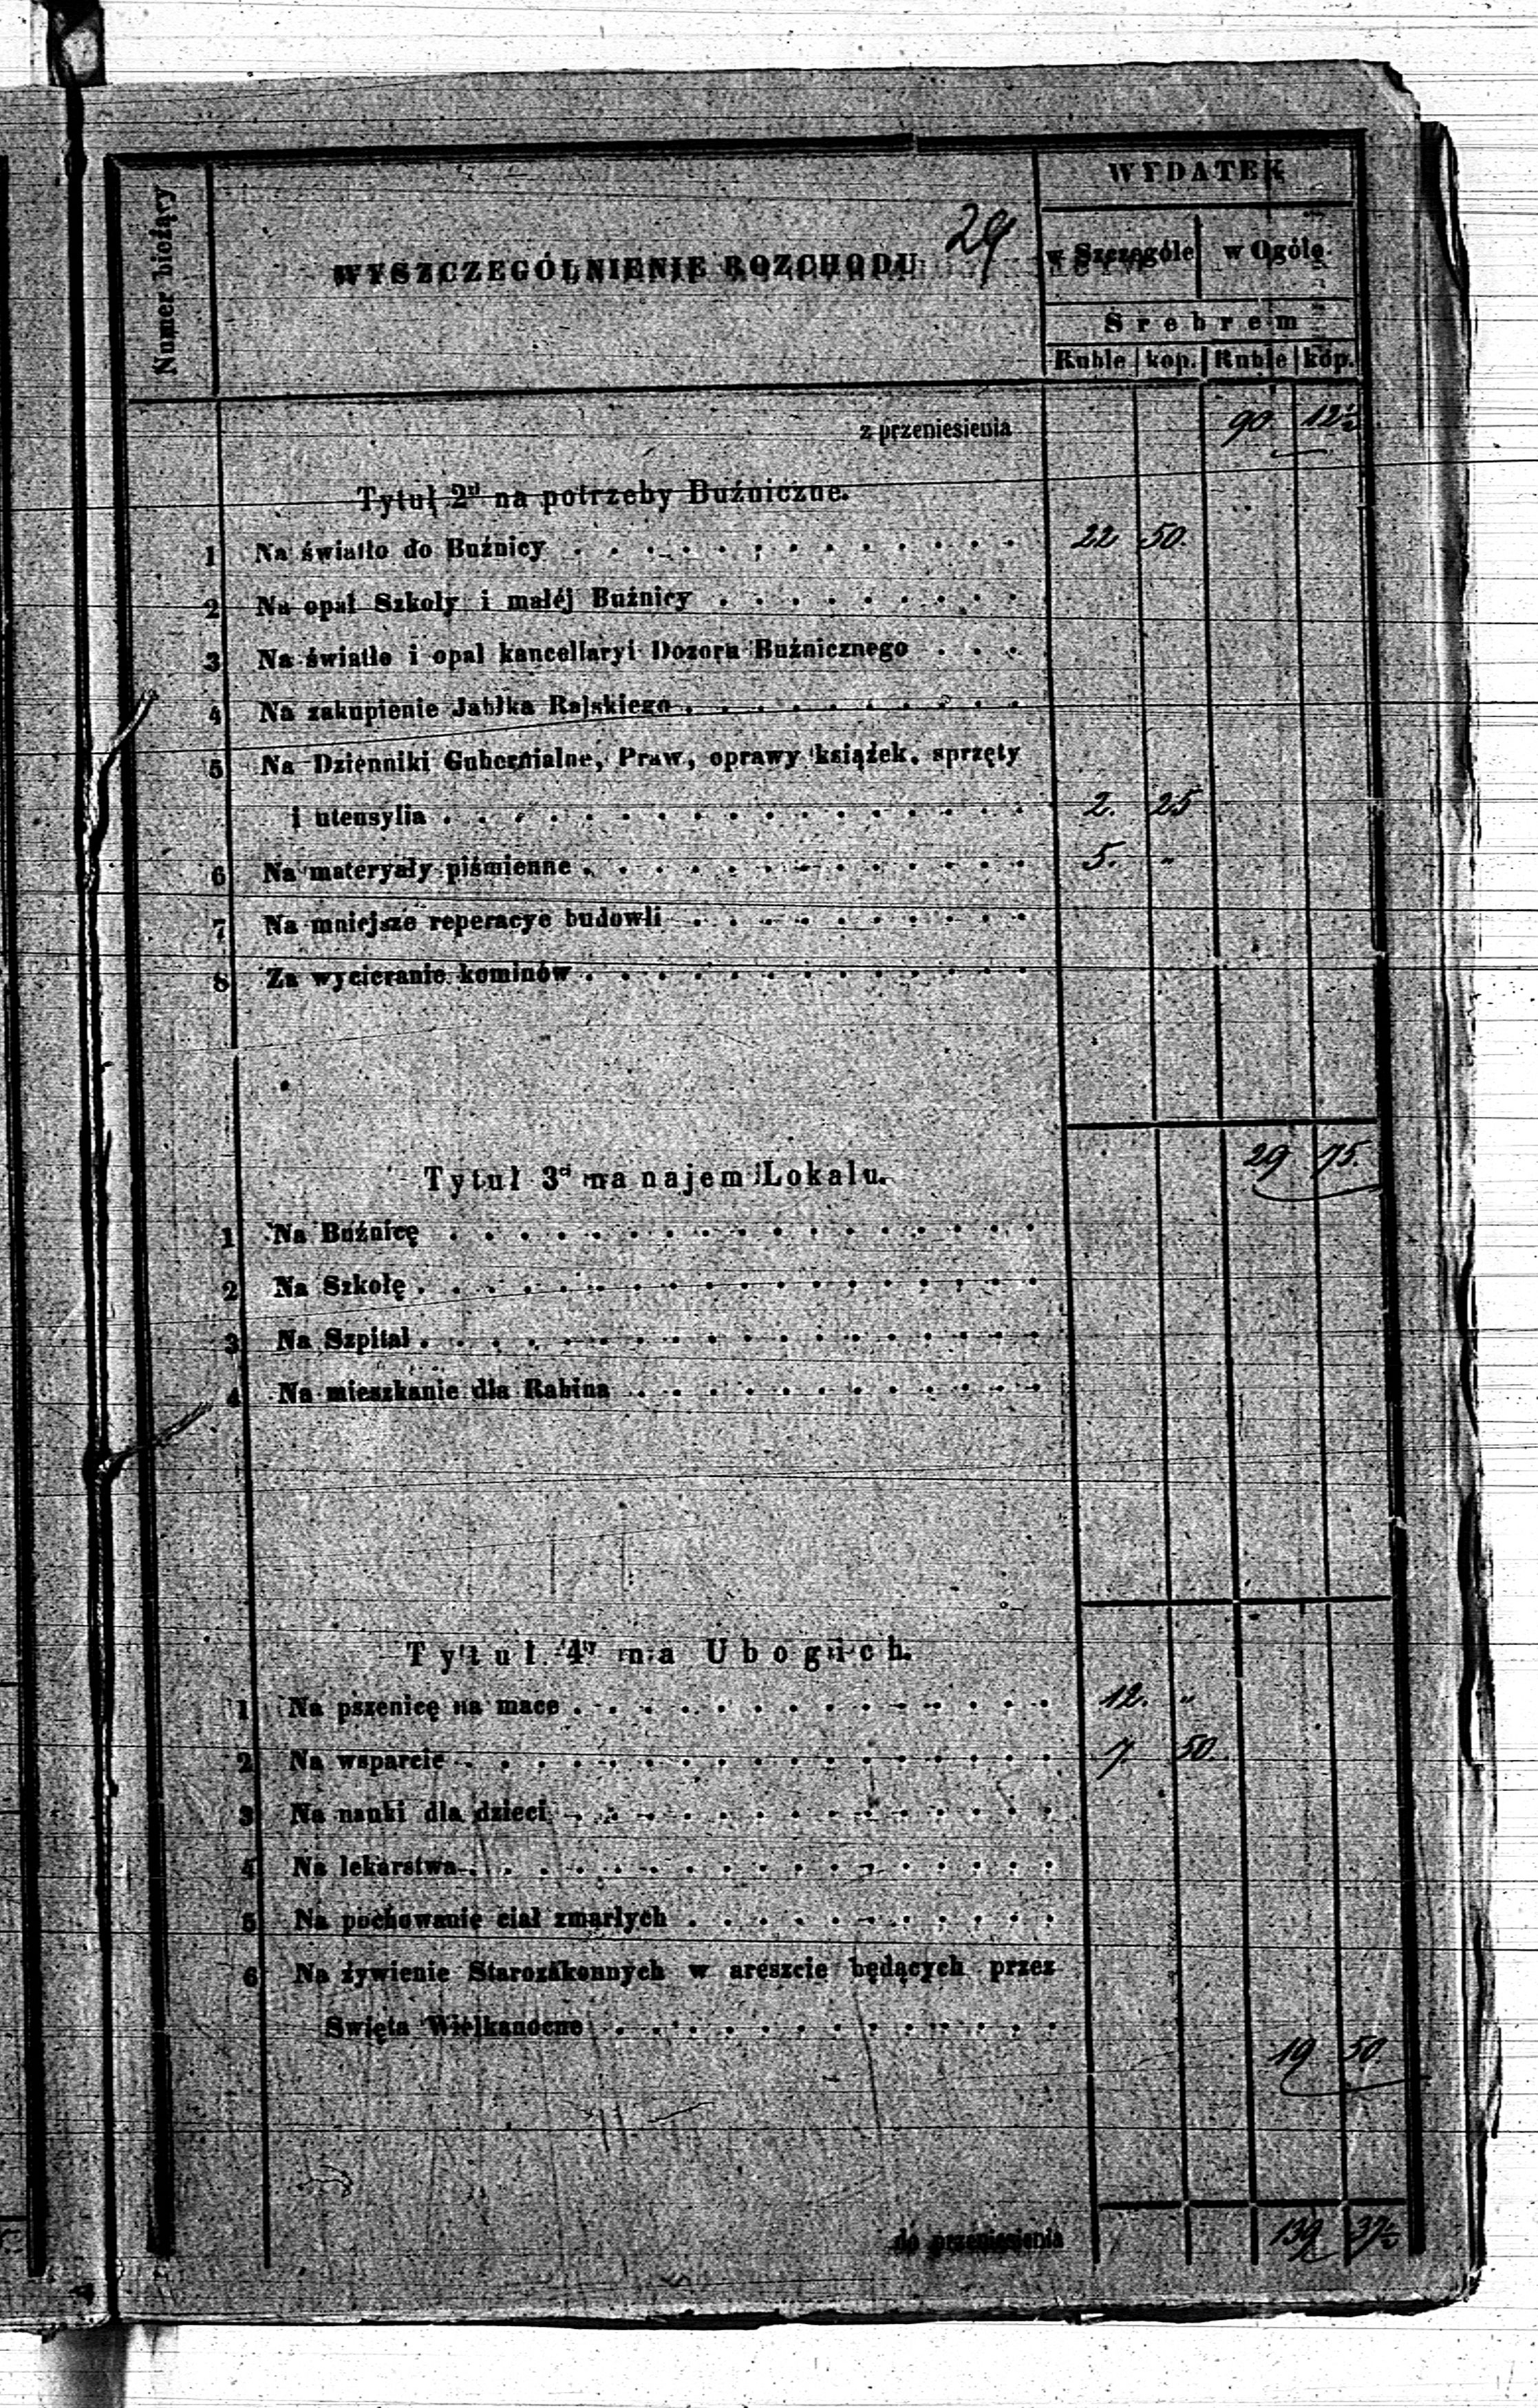 Numer bieżący
WYSZCZEGÓLNIENIE ROZCHODU
29
WYDATEK
w Szczególe w Ogóle
Srebrem
Ruble kop. Ruble kop.
z przeniesienia 90 12½
Tytuł 2gi na potrzeby Bużniczne.
1 Na światło do Buźnicy . . . . . . . . . . . . . 22 50.
2 Na opał Szkoły i małéj Buźnicy . . . . . . . . . .
3 Na światło i opał kancellaryi Dozoru Buźnicznego . . .
4 Na zakupienie Jabłka Rajskiego . . . . . . . . . .
5 Na Dzienniki Gubernialne, Praw, oprawy książek, sprzęty
i utensylia . . . . . . . . . . . . . . . . . 2. 25
6 Na materyały piśmienne . . . . . . . . . . . . . 5. "
7 Na mniejsze reperacye budowli . . . . . . . . . .
8 Za wycieranie kominów . . . . . . . . . . . . .
29 75.
Tytuł 3ci na najem Lokalu.
1 Na Buźnicę . . . . . . . . . . . . . . . . .
2 Na Szkołę . . . . . . . . . . . . . . . . . .
3 Na Szpital . . . . . . . . . . . . . . . . . .
4 Na mieszkanie dla Rabina . . . . . . . . . . . .
Tytuł 4ty na Ubogich.
1 Na pszenicę na mace . . . . . . . . . . . . . . 12. "
2 Na wsparcie . . . . . . . . . . . . . . . . . 7. 50
3 Na nauki dla dzieci . . . . . . . . . . . . . .
4 Na lekarstwa . . . . . . . . . . . . . . . . .
5 Na pochowanie ciał zmarłych . . . . . . . . . . .
6 Na żywienie Starozakonnych w areszcie będących przez
Swięta Wielkanocne . . . . . . . . . . . . .
19 50.
do przeniesienia 139 37½